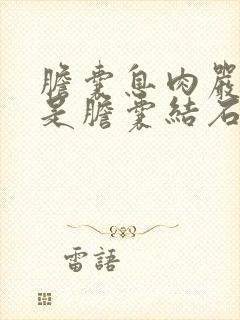 膽囊息肉嚴
是膽囊結石
雷語